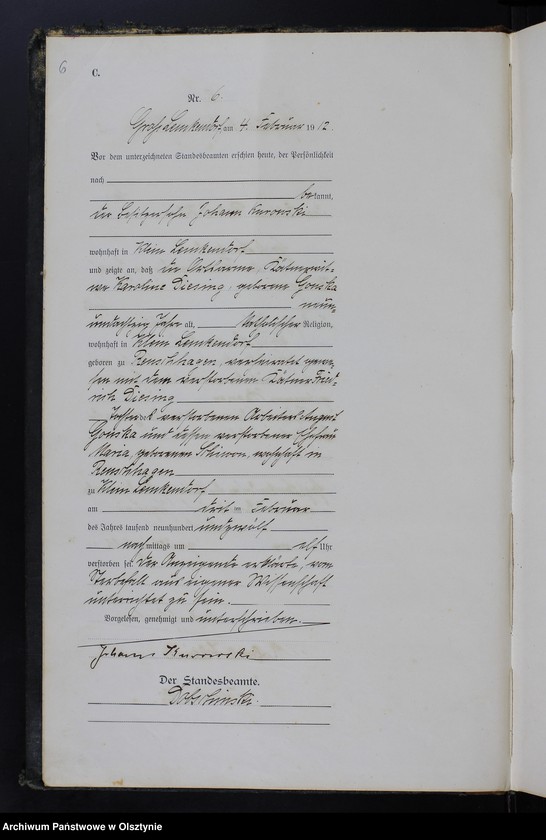 6
C.
Nr. 6.
Groß Lemkendorf am 4. Februar 1912.
Vor dem unterzeichneten Standesbeamten erschien heute, der Persönlichkeit
nach
bekannt,
der Besitzersohn Johann Kurowski
wohnhaft in Klein Lemkendorf
und zeigte an, daß die Ortsarme, Kätnerwit-
we Karoline Diesing, geborene Gonska
neun-
undachtzig Jahre alt, Katholischer Religion,
wohnhaft in Klein Lemkendorf
geboren zu Reuschhagen, verheiratet gewe-
sen mit dem verstorbenen Kätner Fried-
rich Diesing
Tochter des verstorbenen Arbeiters August
Gonska und dessen verstorbener Ehefrau
Maria, geborenen Schiwon, wohnhaft in
Reuschhagen
zu Klein Lemkendorf
am drit ten Februar
des Jahres tausend neunhundert undzwölf
nachmittags um elf Uhr
verstorben sei. Der Anzeigende erklärte, vom
Sterbefall aus eigener Wissenschaft
unterrichtet zu sein.
Vorgelesen, genehmigt und unterschrieben.
Johann Kurowski
Der Standesbeamte.
Dobschinski.
Archiwum Państwowe w Olsztynie